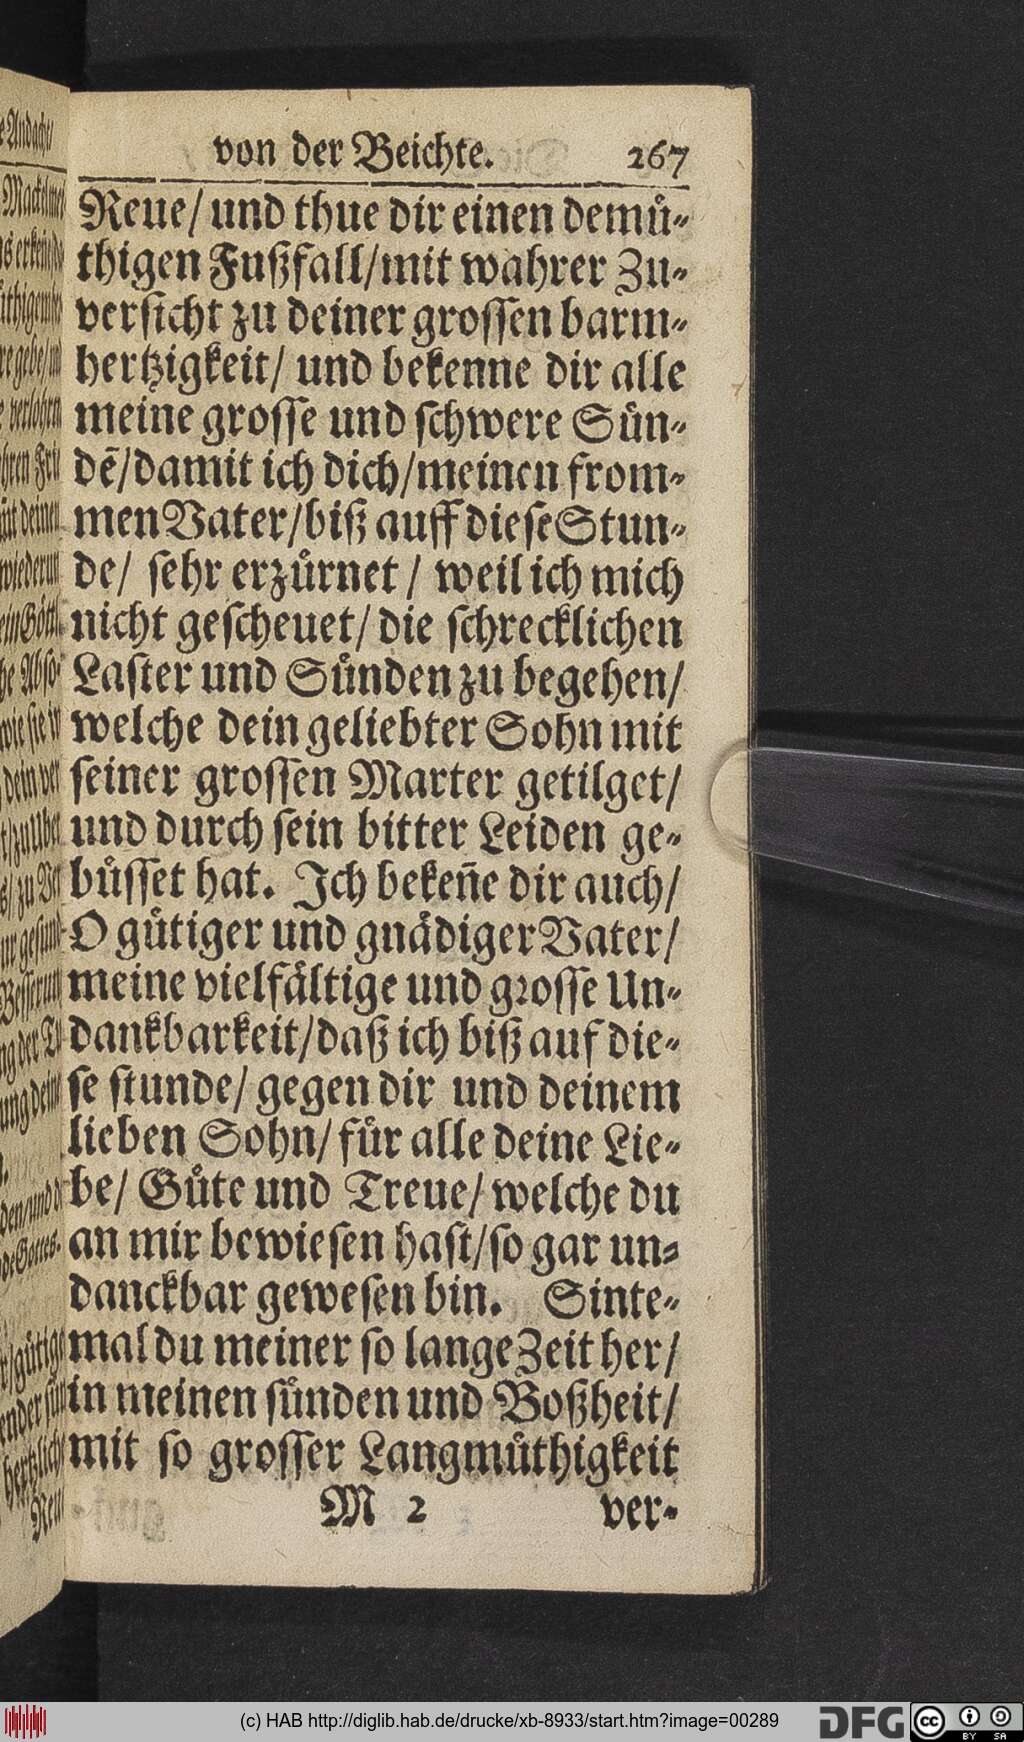 von der Beichte. 267
Reue/ und thue dir einen demuͤ-
thigen Fußfall/mit wahrer Zu-
versicht zu deiner grossen barm-
hertzigkeit/ und bekenne dir alle
meine grosse und schwere Suͤn-
dē/damit ich dich/meinen from-
men Vater/biß auff diese Stun-
de/ sehr erzuͤrnet / weil ich mich
nicht gescheuet/ die schrecklichen
Laster und Suͤnden zu begehen/
welche dein geliebter Sohn mit
seiner grossen Marter getilget/
und durch sein bitter Leiden ge-
buͤsset hat. Ich bekeñe dir auch/
O guͤtiger und gnaͤdiger Vater/
meine vielfaͤltige und grosse Un-
dankbarkeit/daß ich biß auf die-
se stunde/ gegen dir und deinem
lieben Sohn/ fuͤr alle deine Lie-
be/ Guͤte und Treue/ welche du
an mir bewiesen hast/so gar un-
danckbar gewesen bin. Sinte-
mal du meiner so lange Zeit her/
in meinen suͤnden und Boßheit/
mit so grosser Langmuͤthigkeit
M 2 ver-
(c) HAB http://diglib.hab.de/drucke/xb-8933/start.htm?image=00289
DFG cc BY SA